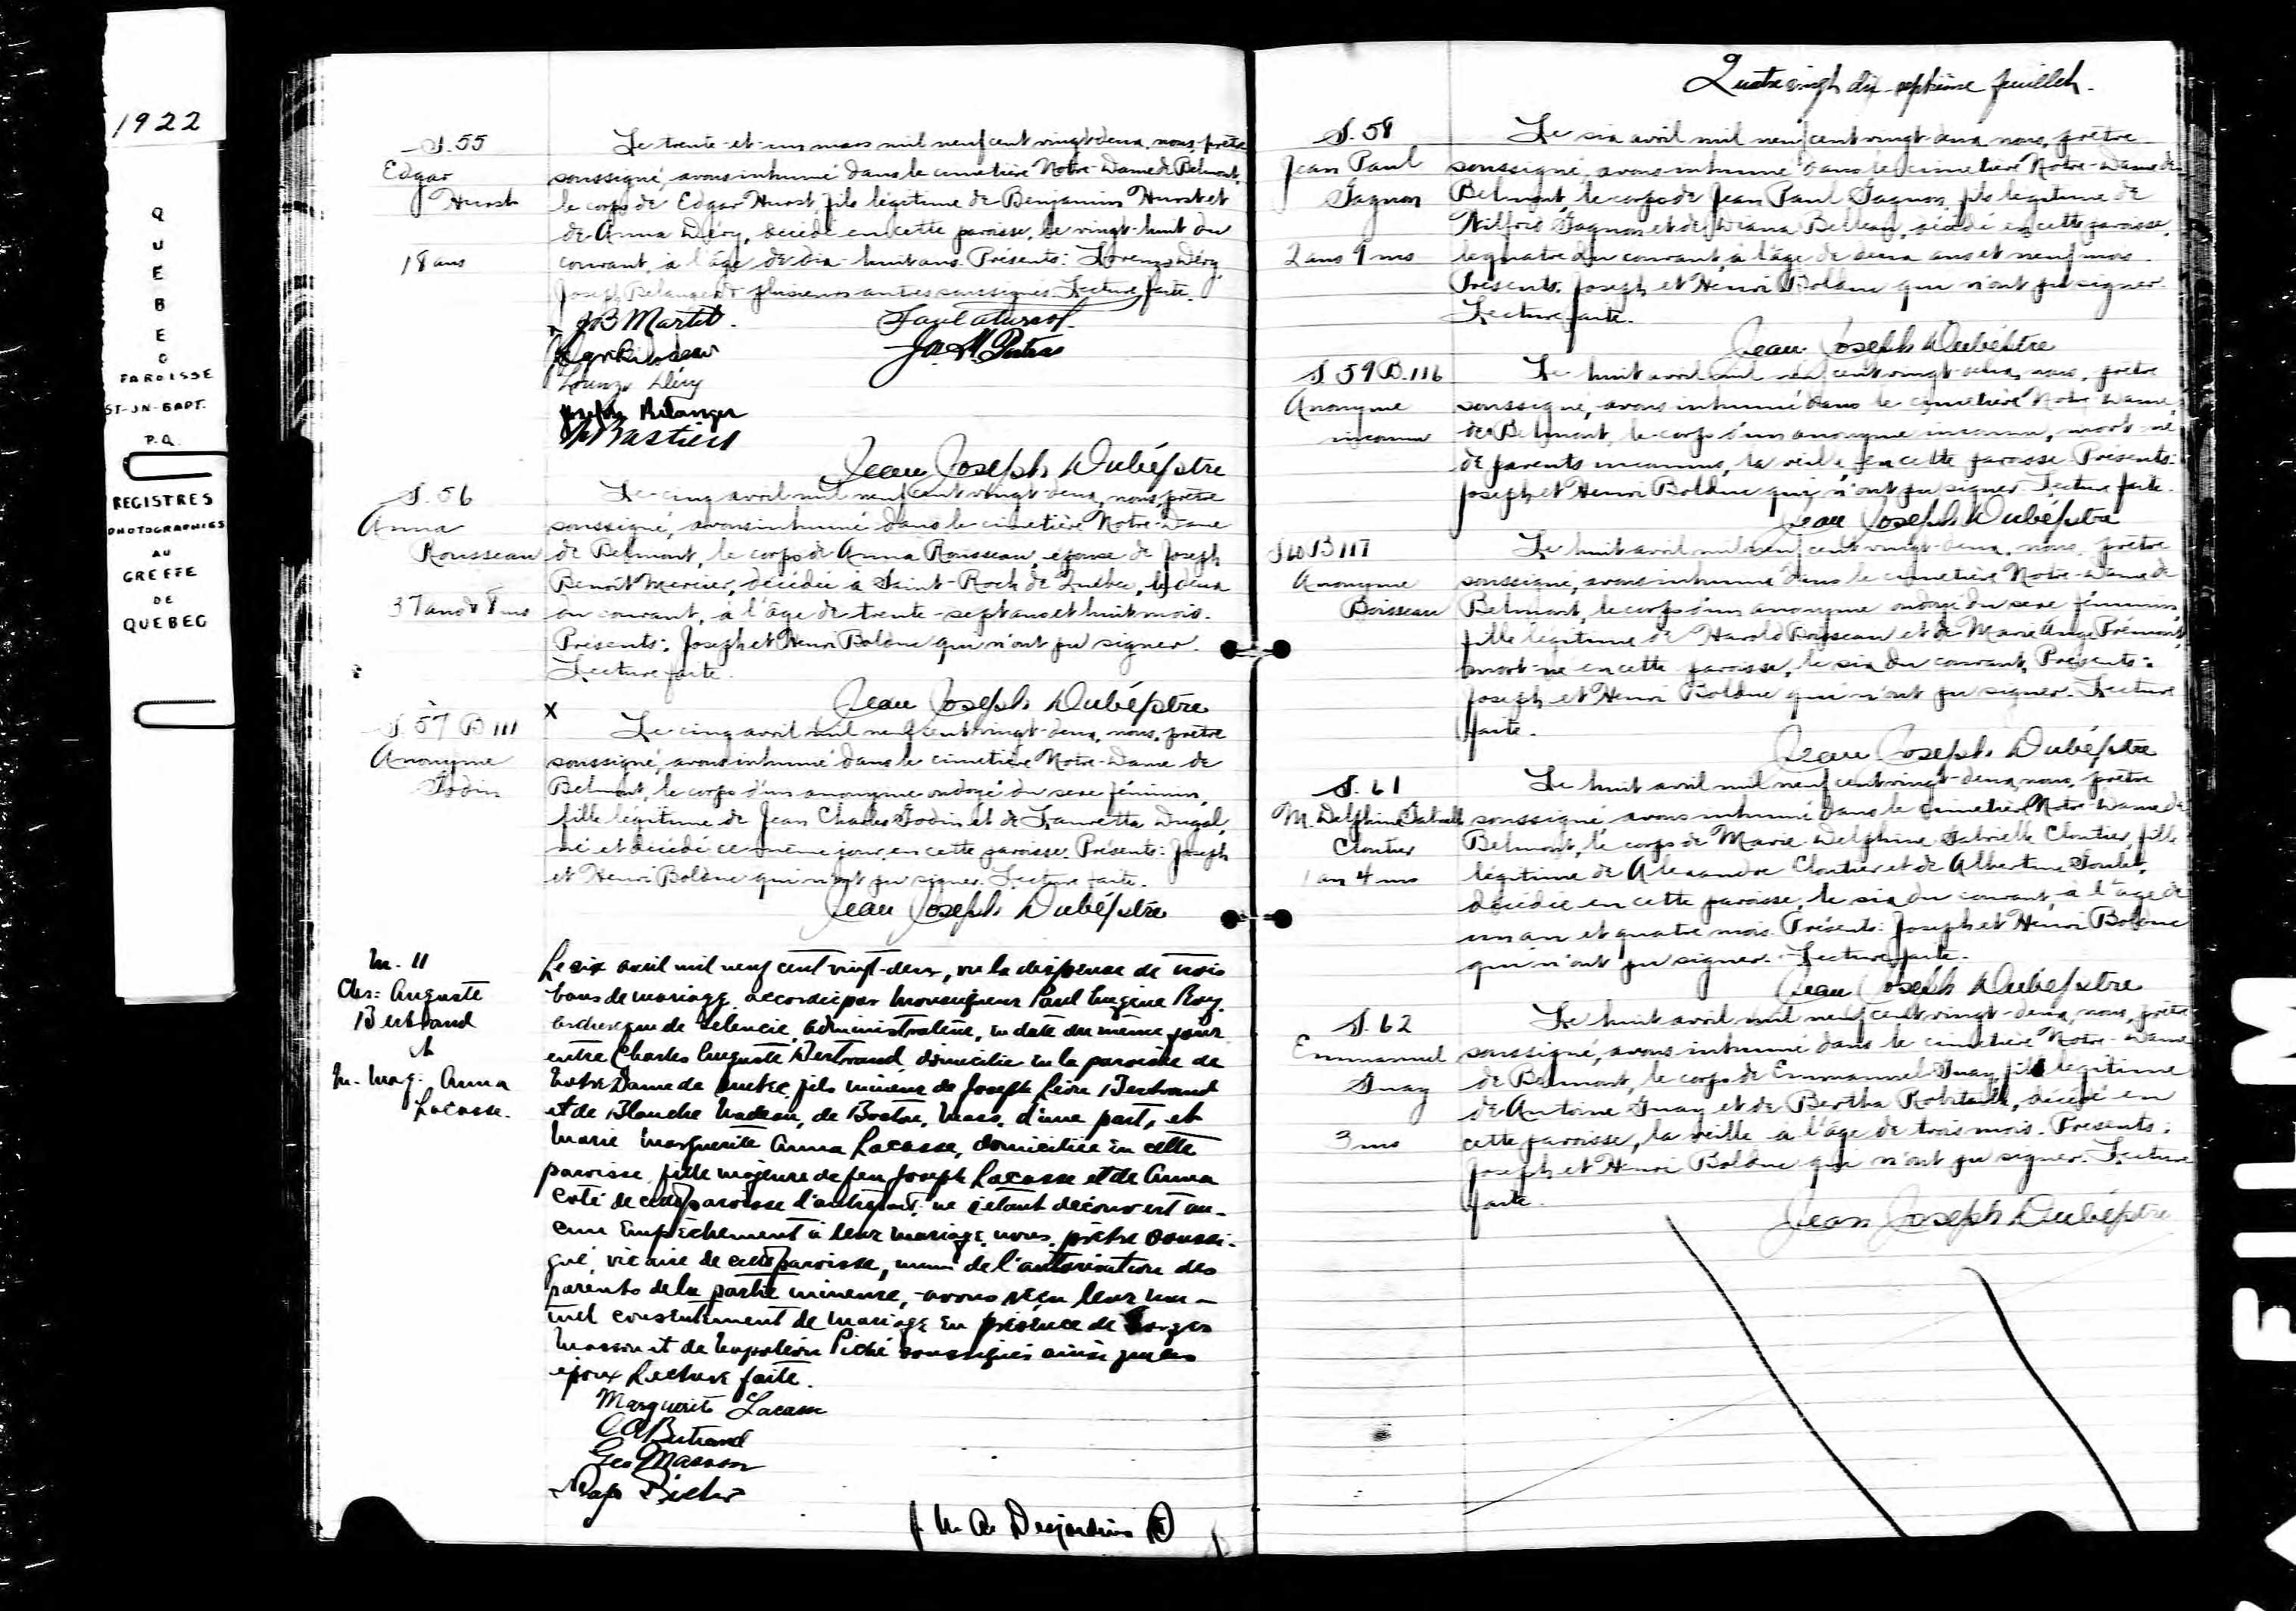 1922
QUEBEC
PAROISSE
ST-JN-BAPT.
P.Q.
REGISTRES
PHOTOGRAPHIES
AU
GREFFE
DE
QUEBEC
S. 55
Edgar
Hurst
18 ans
Le trente-et-un mars mil neuf cent vingt-deux, nous, prêtre
soussigné, avons inhumé dans le cimetière Notre-Dame de Belmont,
le corps de Edgar Hurst, fils légitime de Benjamin Hurst et
de Anna Déry, décédé en cette paroisse, le vingt-huit du
courant, à l'âge de dix-huit ans. Présents: Lorenzo Déry,
Joseph Belanger & plusieurs autres soussignés. Lecture faite.
JB Martel.
Lorenzo Déry
Joseph Belanger
Bastien
Jean Joseph Dubéptre
S. 56
Anna
Rousseau
37 ans & 8 ms
Le cinq avril mil neuf cent vingt-deux, nous, prêtre
soussigné, avons inhumé dans le cimetière Notre-Dame
de Belmont, le corps de Anna Rousseau, épouse de Joseph
Benoît Mercier, décédée à Saint-Roch de Québec, le deux
du courant, à l'âge de trente-sept ans et huit mois.
Présents: Joseph et Henri Bolduc qui n'ont pu signer.
Lecture faite.
Jean Joseph Dubéptre
S. 57 B 111
Anonyme
Godin
X
Le cinq avril mil neuf cent vingt-deux, nous, prêtre
soussigné, avons inhumé dans le cimetière Notre-Dame de
Belmont, le corps d'un anonyme ondoyé du sexe féminin,
fille légitime de Jean Charles Godin et de Lauretta Dugal,
né et décédé ce même jour, en cette paroisse. Présents: Joseph
et Henri Bolduc qui n'ont pu signer. Lecture faite.
Jean Joseph Dubéptre
M. 11
Chs: Auguste
Bertrand
&
M. Marg. Anna
Lacasse.
Le six avril mil neuf cent vingt-deux, vu la dispense de trois
bans de mariage accordée par Monseigneur Paul Eugène Roy,
archevêque de Séleucie, administrateur, en date du même jour
entre Charles Auguste Bertrand, domicilié en la paroisse de
Notre Dame de Québec, fils mineur de Joseph Léon Bertrand
et de Blanche Nadeau, de Boston, Mass. d'une part, et
Marie Marguerite Anna Lacasse, domiciliée en cette
paroisse, fille majeure de feu Joseph Lacasse et de Anna
Coté de cette paroisse d'autre part; ne s'étant découvert au-
cun empêchement à leur mariage, nous, prêtre soussi-
gné, vicaire de cette paroisse, muni de l'autorisation des
parents de la partie mineure, avons reçu leur mu-
tuel consentement de mariage en présence de Georges
Masson et de Napoléon Piché soussignés ainsi que les
époux Lecture faite.
Marguerite Lacasse
C A Bertrand
Geo Masson
Nap Piché
J. M. A. Desjardins
Quatre vingt dix-septième feuillet.
S. 58
Jean Paul
Gagnon
2 ans 9 ms
Le six avril mil neuf cent vingt-deux nous, prêtre
soussigné, avons inhumé dans le cimetière Notre-Dame de
Belmont, le corps de Jean Paul Gagnon, fils légitime de
Wilfrid Gagnon et de Diana Belleau, décédé en cette paroisse,
le quatre du courant, à l'âge de deux ans et neuf mois.
Présents: Joseph et Henri Bolduc qui n'ont pu signer.
Lecture faite.
Jean Joseph Dubéptre
S 59 B. 116
Anonyme
inconnu
Le huit avril mil neuf cent vingt-deux, nous, prêtre
soussigné, avons inhumé dans le cimetière Notre-Dame
de Belmont, le corps d'un anonyme inconnu, mort-né
de parents inconnus, la veille, en cette paroisse. Présents:
Joseph et Henri Bolduc qui n'ont pu signer. Lecture faite.
Jean Joseph Dubéptre
S 60 B 117
Anonyme
Boisseau
Le huit avril mil neuf cent vingt-deux, nous, prêtre
soussigné, avons inhumé dans le cimetière Notre-Dame de
Belmont, le corps d'un anonyme ondoyé du sexe féminin,
fille légitime de Harold Boisseau et de Marie Ange Frémont,
mort-né en cette paroisse, le six du courant. Présents:
Joseph et Henri Bolduc qui n'ont pu signer. Lecture
faite.
Jean Joseph Dubéptre
S. 61
M. Delphine Gabrielle
Cloutier
1 an 4 ms
Le huit avril mil neuf cent vingt-deux, nous, prêtre
soussigné avons inhumé dans le cimetière Notre-Dame de
Belmont, le corps de Marie Delphine Gabrielle Cloutier, fille
légitime de Alexandre Cloutier et de Albertine Goulet,
décédée en cette paroisse, le six du courant, à l'âge de
un an et quatre mois. Présents: Joseph et Henri Bolduc
qui n'ont pu signer. Lecture faite.
Jean Joseph Dubéptre
S. 62
Emmanuel
Guay
3 ms
Le huit avril mil neuf cent vingt-deux, nous, prêtre
soussigné, avons inhumé dans le cimetière Notre-Dame
de Belmont, le corps de Emmanuel Guay, fils légitime
de Antoine Guay et de Bertha Robitaille, décédé en
cette paroisse, la veille à l'âge de trois mois. Présents:
Joseph et Henri Bolduc qui n'ont pu signer. Lecture
faite.
Jean Joseph Dubéptre
FILM